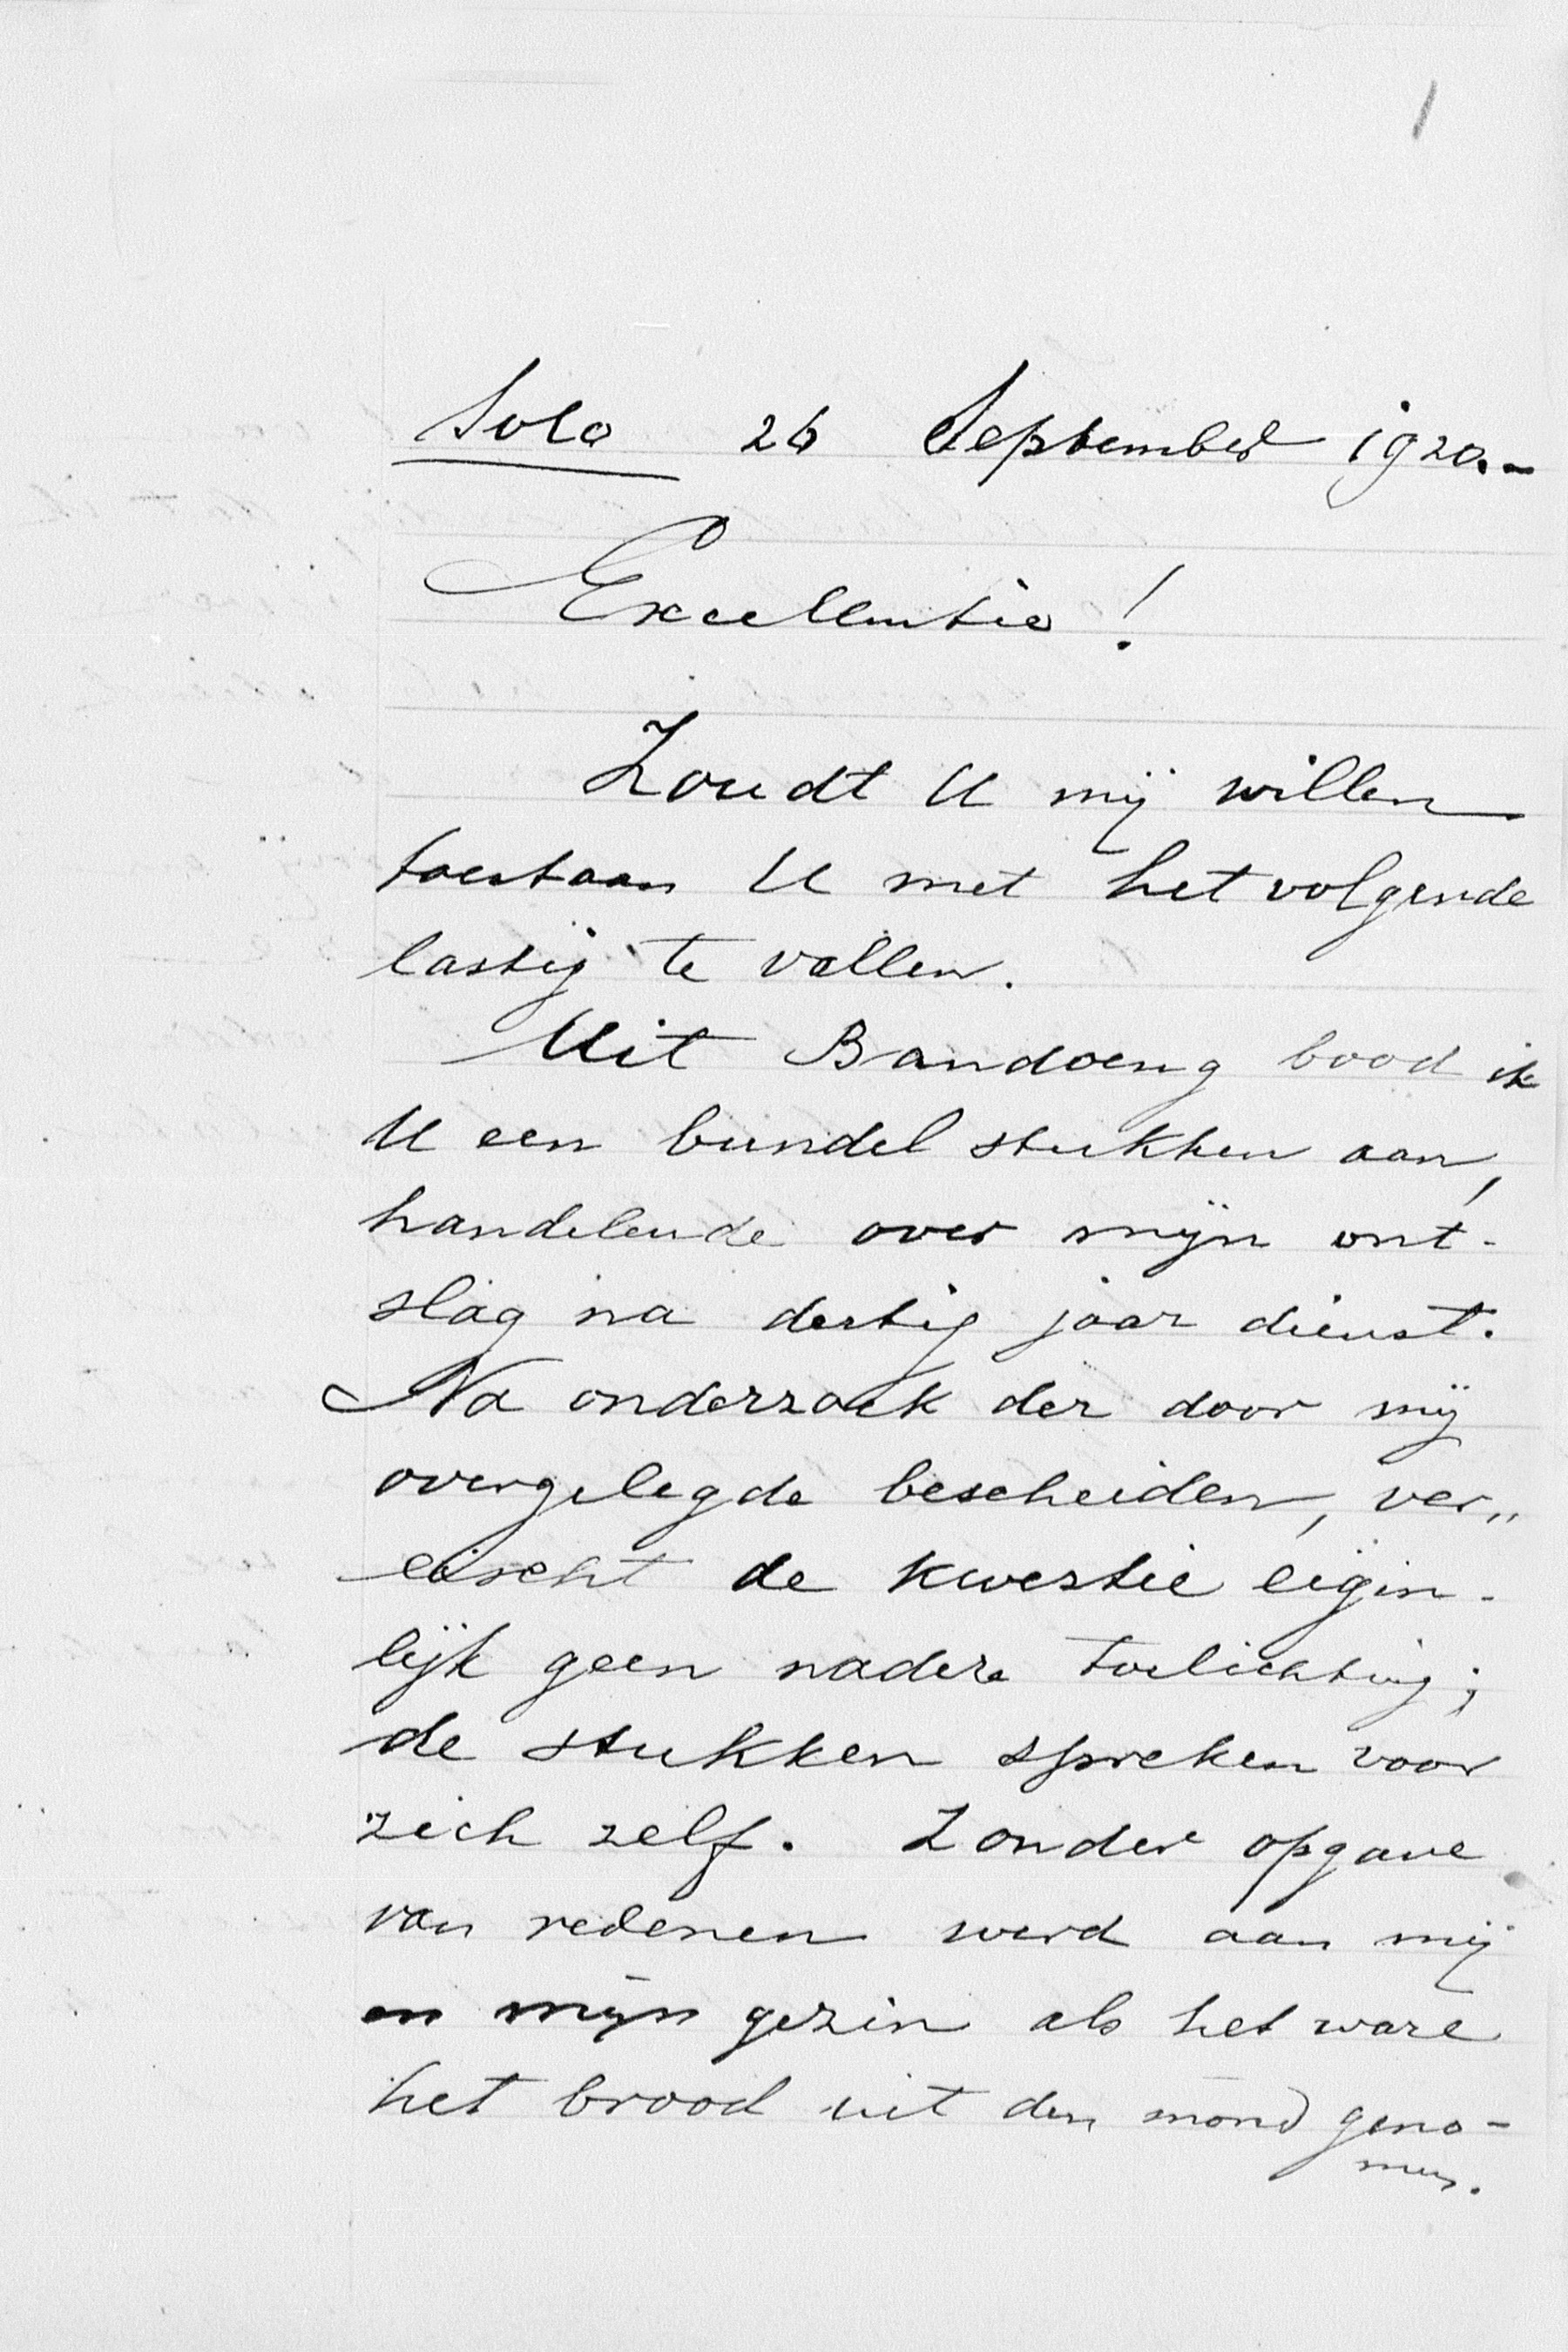 Solo 26 September 1920.-
Excellentie!
Zoudt U mij willen
toestaan U met het volgende
lastig te vallen.
Uit Bandoeng bood ik
U een bundel stukken aan,
handelende over mijn ont-
slag na dertig jaar dienst.
Na onderzoek der door mij
overgelegde bescheiden, ver„
eischt de kwestie eigen-
lijk geen nadere toelichting;
de stukken spreken voor
zich zelf. Zonder opgave
van redenen werd aan mij
en mijn gezin als het ware
het brood uit den mond geno-
men.